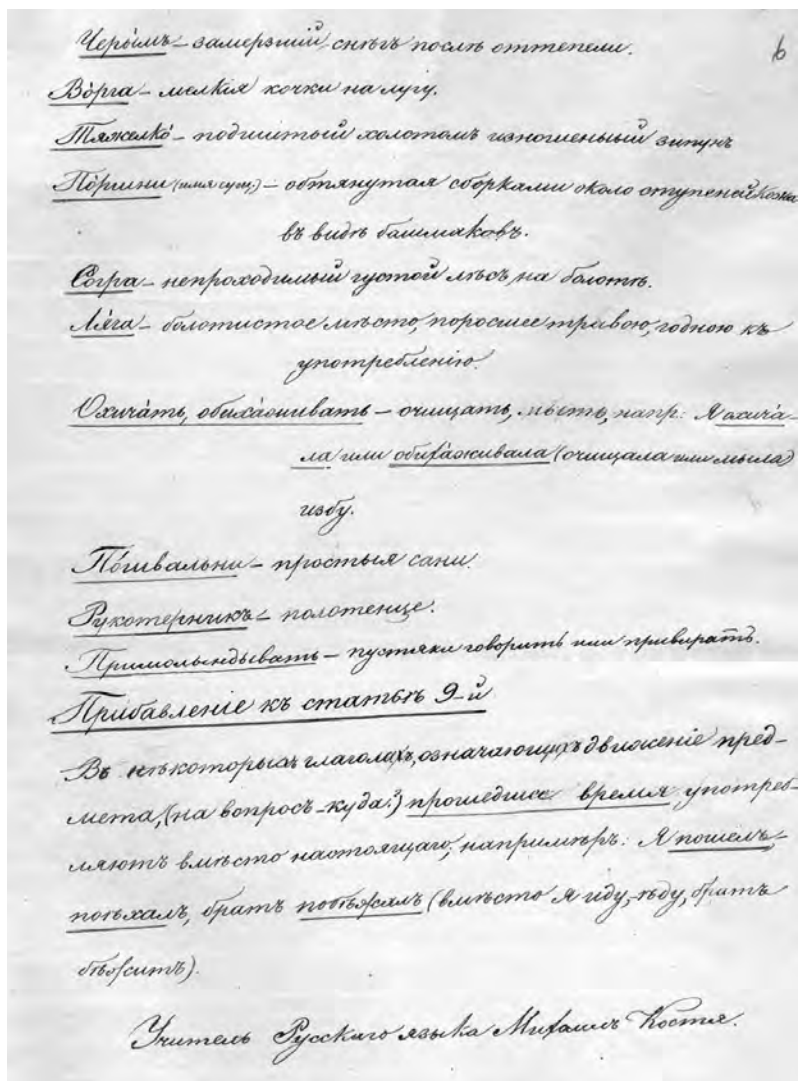 6
Черо́мъ – замерзшій снѣгъ послѣ оттепели.
Во́рга – мелкія кочки на лугу.
Тяжелко́ – подшитый холстомъ изношеный зипунъ
По́ршни (имя сущ.) – обтянутая сборками около ступеней кожа
въ видѣ башмаковъ.
Со́гра – непроходимый густой лѣсъ на болотѣ.
Ля́га – болотистое мѣсто, поросшее травою, годною къ
употребленію.
Охича́ть, обиха́живать – очищать, мыть, напр: Я охича́-
ла или обиха́живала (очищала или мыла)
избу.
По́швальни – простыя сани.
Рукотерникъ – полотенце.
Примолындывать – пустяки говорить или привирать.
Прибавленіе къ статьѣ 9-й
Въ нѣкоторыхъ глаголахъ, означающихъ движеніе пред-
мета, (на вопросъ – куда?) прошедшее время употреб-
ляютъ вмѣсто настоящаго; напримѣръ: Я пошелъ,-
поѣхалъ, братъ побѣжалъ (вмѣсто я иду,-ѣду, братъ
бѣжитъ).
Учитель Русскаго языка Михаилъ